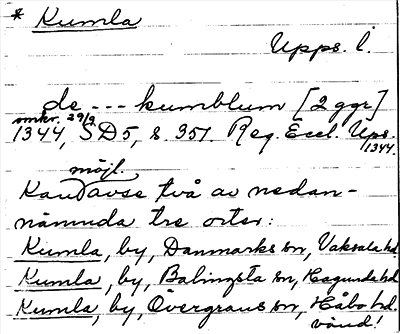 * Kumla
Upps. l.
de --- kumblum [2 ggr]
omkr. 29/3
1344, SD5, s. 351. Reg. Eccl. Ups.
1344.
möjl.
Kan avse två av nedan-
nämnda tre orter:
Kumla, by, Danmarks sn, Vaksala hd
Kumla, by, Balingsta sn, Hagunda hd
Kumla, by, Övergrans sn, Håbo hd.
vänd!